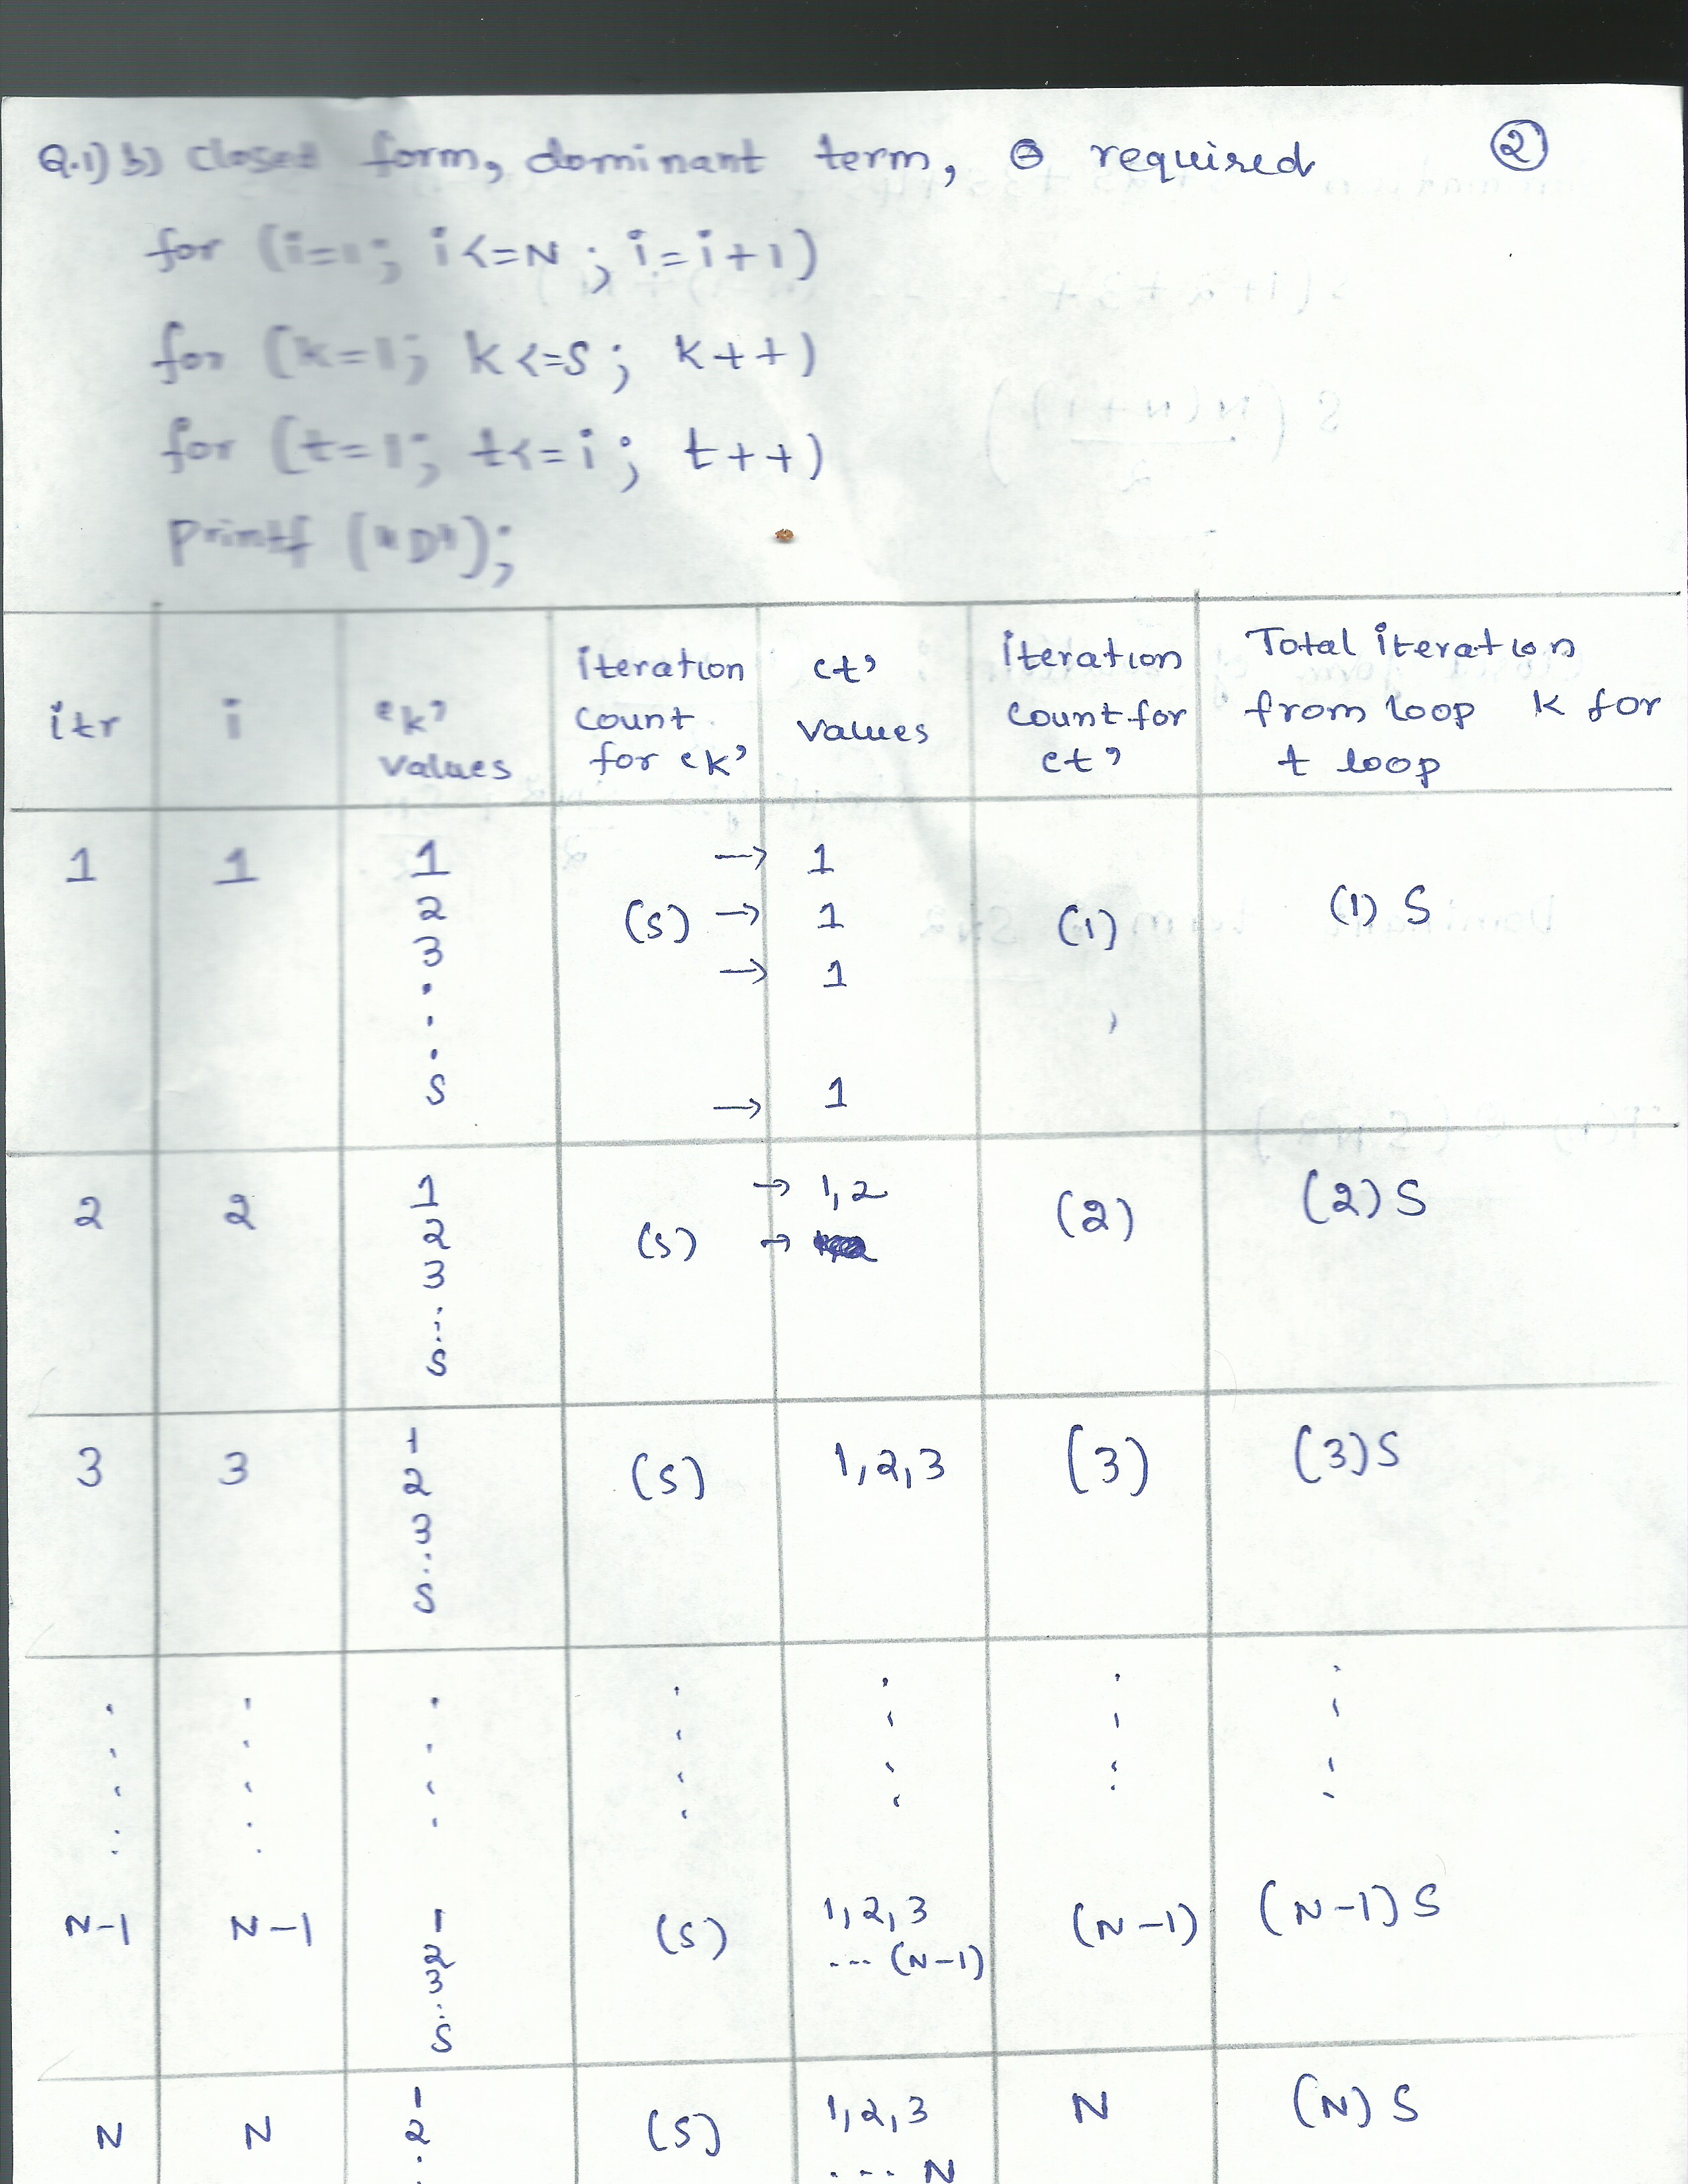 Q.1) b) closed form, dominant term, Θ required ②
for (i=1; i<=N; i=i+1)
for (k=1; k<=S; k++)
for (t=1; t<=i; t++)
printf ("D");
itr | i | 'k' values | iteration count for 'k' | 't' values | iteration count for 't' | Total iteration from loop k for t loop
1 | 1 | 1 2 3 . . . S | (S) | → 1 → 1 → 1 → 1 | (1) | (1) S
2 | 2 | 1 2 3 ... S | (S) | → 1,2 → | (2) | (2) S
3 | 3 | 1 2 3 ... S | (S) | 1,2,3 | (3) | (3) S
N-1 | N-1 | 1 2 3 ... S | (S) | 1,2,3 ... (N-1) | (N-1) | (N-1) S
N | N | 1 2 . . | (S) | 1,2,3 .... N | N | (N) S